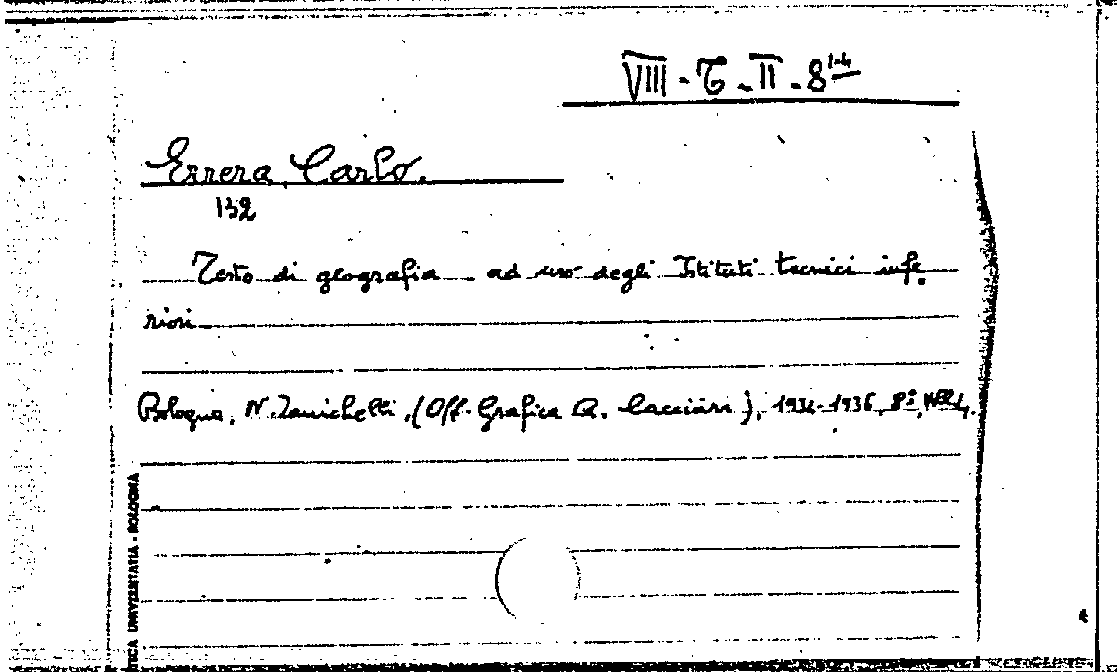 VIII - T - II - 8 1-4
Errera, Carlo.
132
Testo di geografia ad uso degli Istituti tecnici infe.
riori
Bologna, N. Zanichelli, (Off. Grafica A. Cacciari), 1934-1936, 8°, voll. 4.
TICA UNIVERSITARIA - BOLOGNA